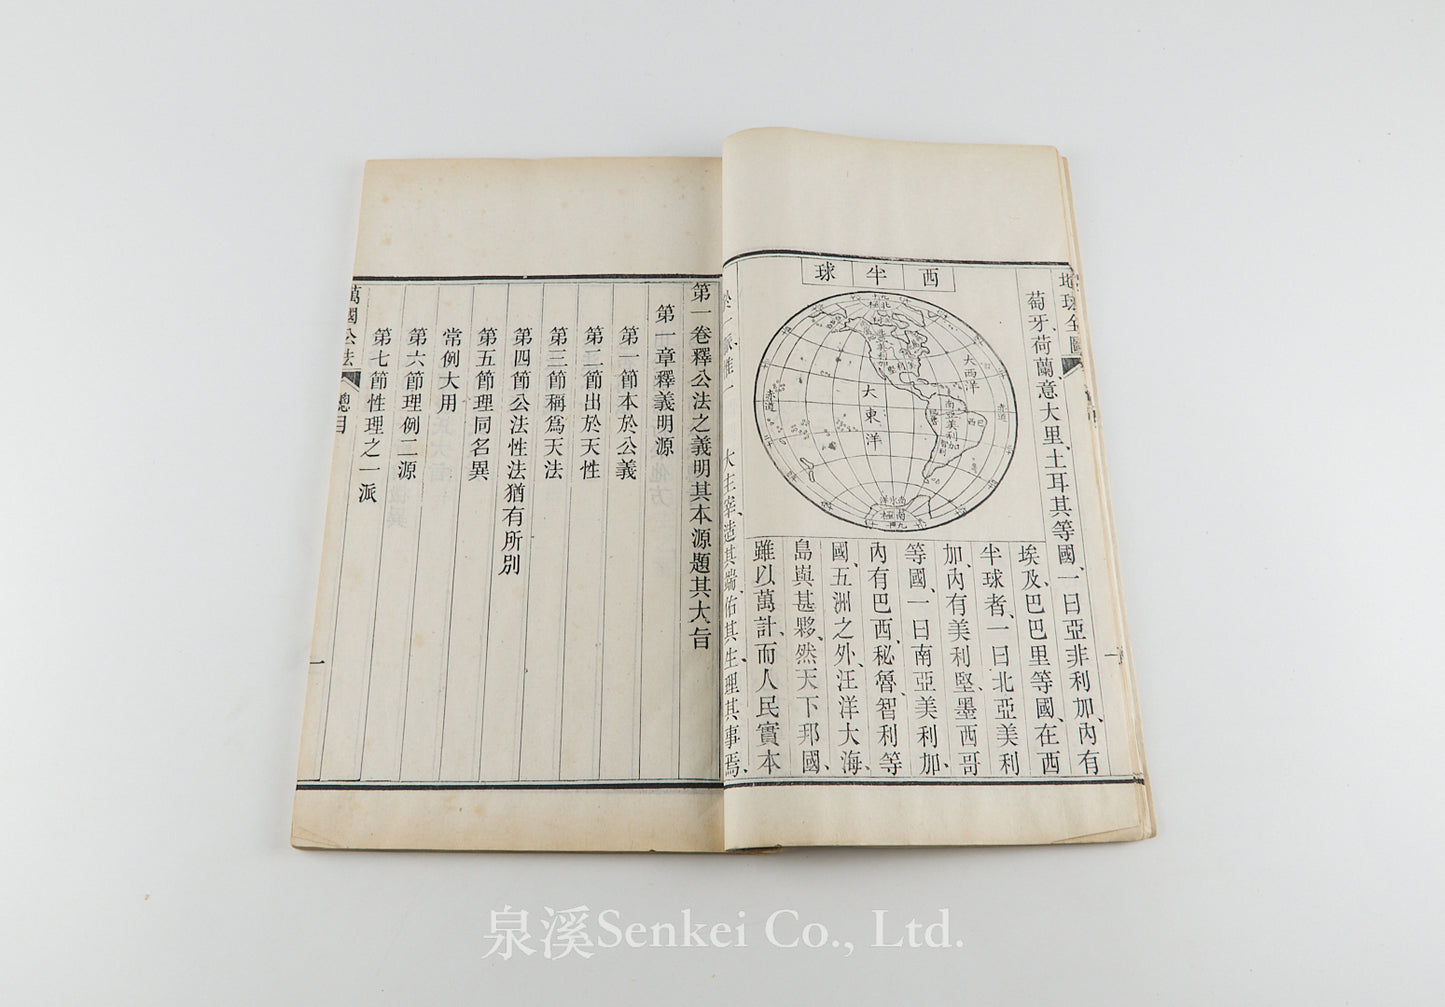 地球全圖
萄牙、荷蘭意大里、土耳其等國、一曰亞非利加、內有
埃及、巴巴里等國、在西
半球者、一曰北亞美利
加、內有美利堅墨西哥
等國、一曰南亞美利加、
內有巴西、秘魯、智利等
國、五洲之外、汪洋大海、
島與甚夥、然天下邦國、
雖以萬計、而人民實本
於一派、惟一大主宰、造其端、佑其生、理其事焉、
西半球
大西洋
大東洋
赤道
赤道
南亞美利加
智利
巴西
南冰洋
南極
第一卷釋公法之義明其本源題其大旨
第一章釋義明源
第一節本於公義
第二節出於天性
第三節稱爲天法
第四節公法性法猶有所別
第五節理同名異
常例大用
第六節理例二源
第七節性理之一派
萬國公法
總目
一
泉溪Senkei Co., Ltd.